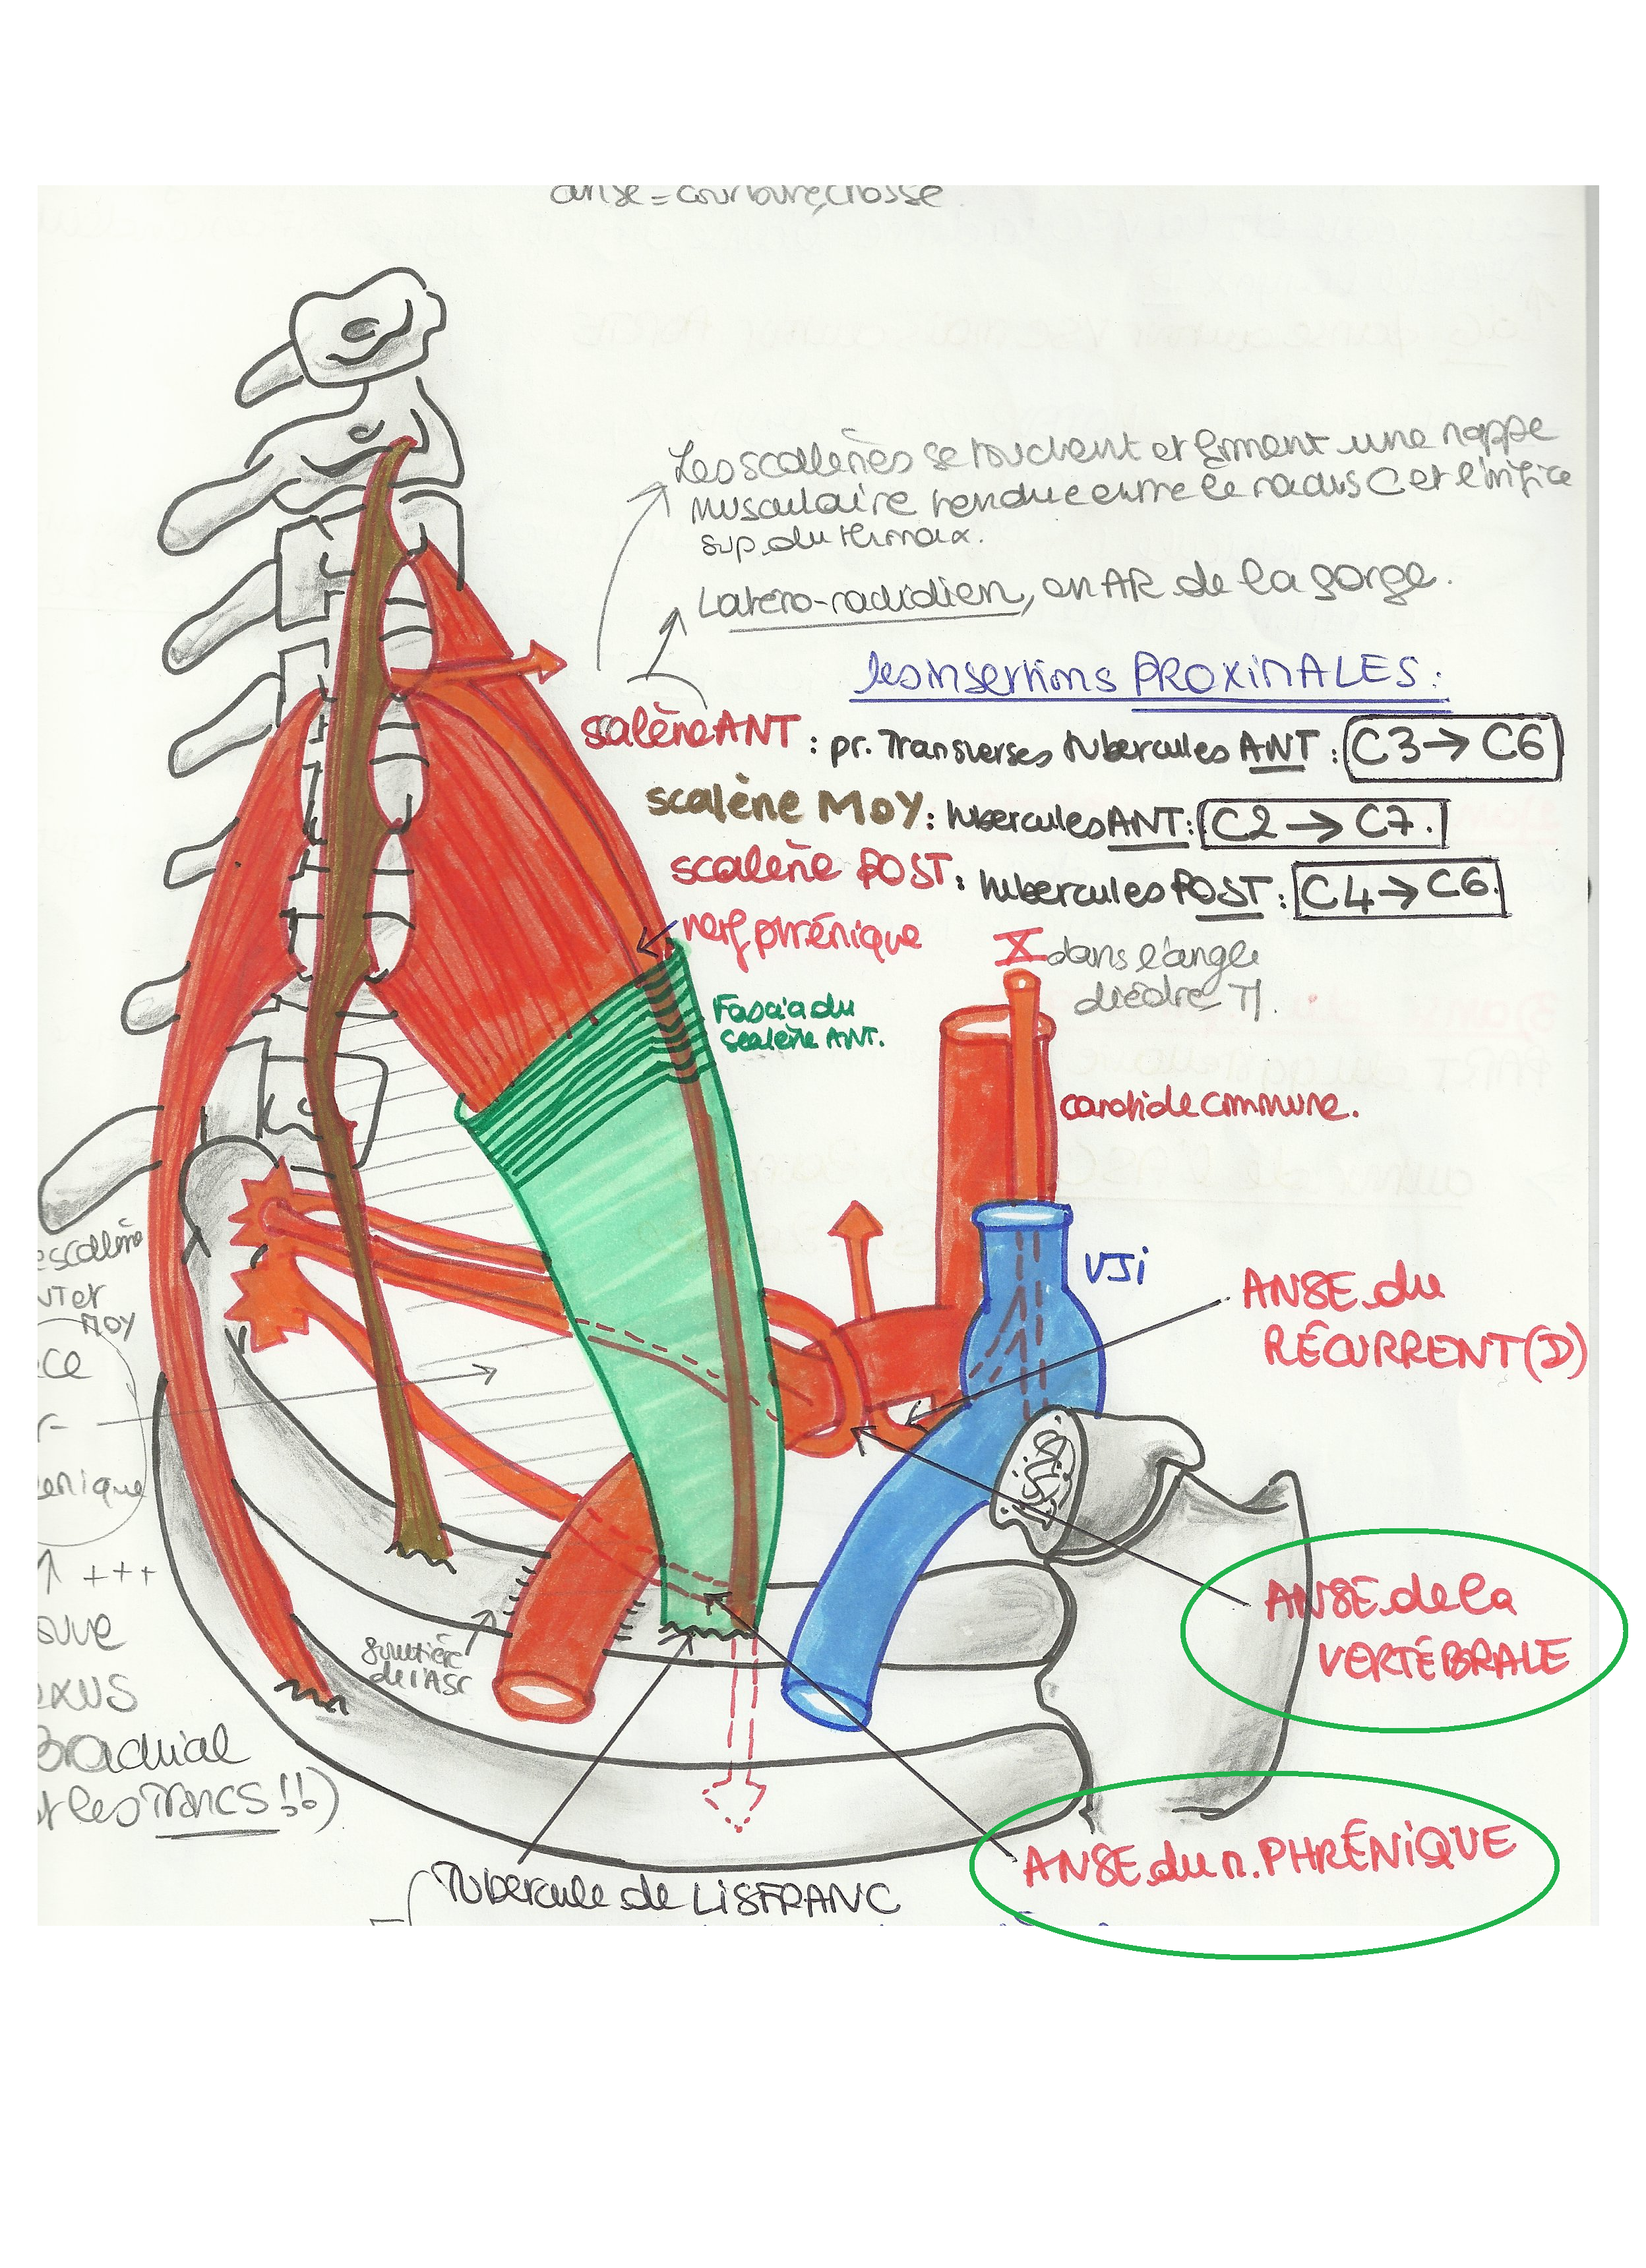 anse = courbure, crosse
Les scalènes se touchent et forment une nappe
musculaire tendue entre le rachis C et l'orifice
sup. du thorax.
Latéro-rachidien, en AR de la gorge.
les insertions PROXIMALES :
scalène ANT : pr. Transverses tubercules ANT : C3 → C6
scalène MOY : tubercules ANT : C2 → C7.
scalène POST : tubercules POST : C4 → C6.
nerf phrénique
X dans l'angle
dièdre TJ.
Fascia du
scalène ANT.
carotide commune.
VJi
ANSE du
RÉCURRENT (D)
escalène
NT et
MOY
ce
r-
enique
↑ +++
Brachial
t les TRONCS !!)
gouttière
de l'ASC
ANSE de la
VERTÉBRALE
ANSE du n. PHRÉNIQUE
Tubercule de LISFRANC